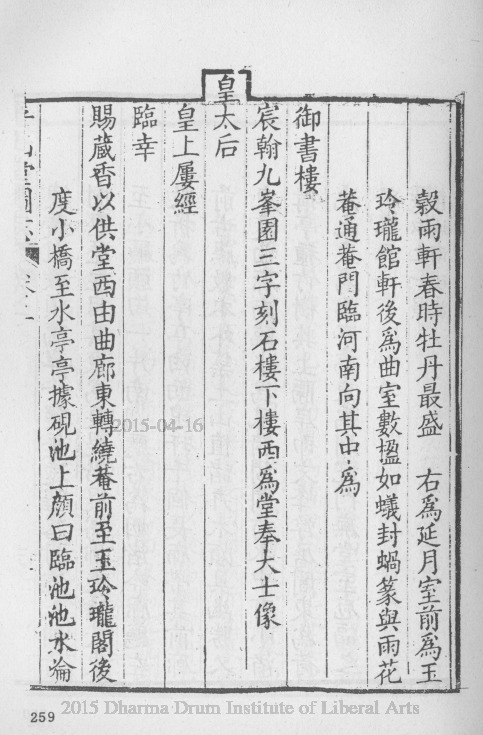 穀雨軒春時牡丹最盛　右爲延月室前爲玉
玲瓏館軒後爲曲室數楹如蟻封蝸篆與雨花
菴通菴門臨河南向其中爲
御書樓
宸翰九峯園三字刻石樓下樓西爲堂奉大士像
皇太后
皇上屢經
臨幸
賜藏香以供堂西由曲廊東轉繞菴前至玉玲瓏閣後
度小橋至水亭亭據硯池上顔曰臨池池水淪
2015-04-16
2015 Dharma Drum Institute of Liberal Arts
259